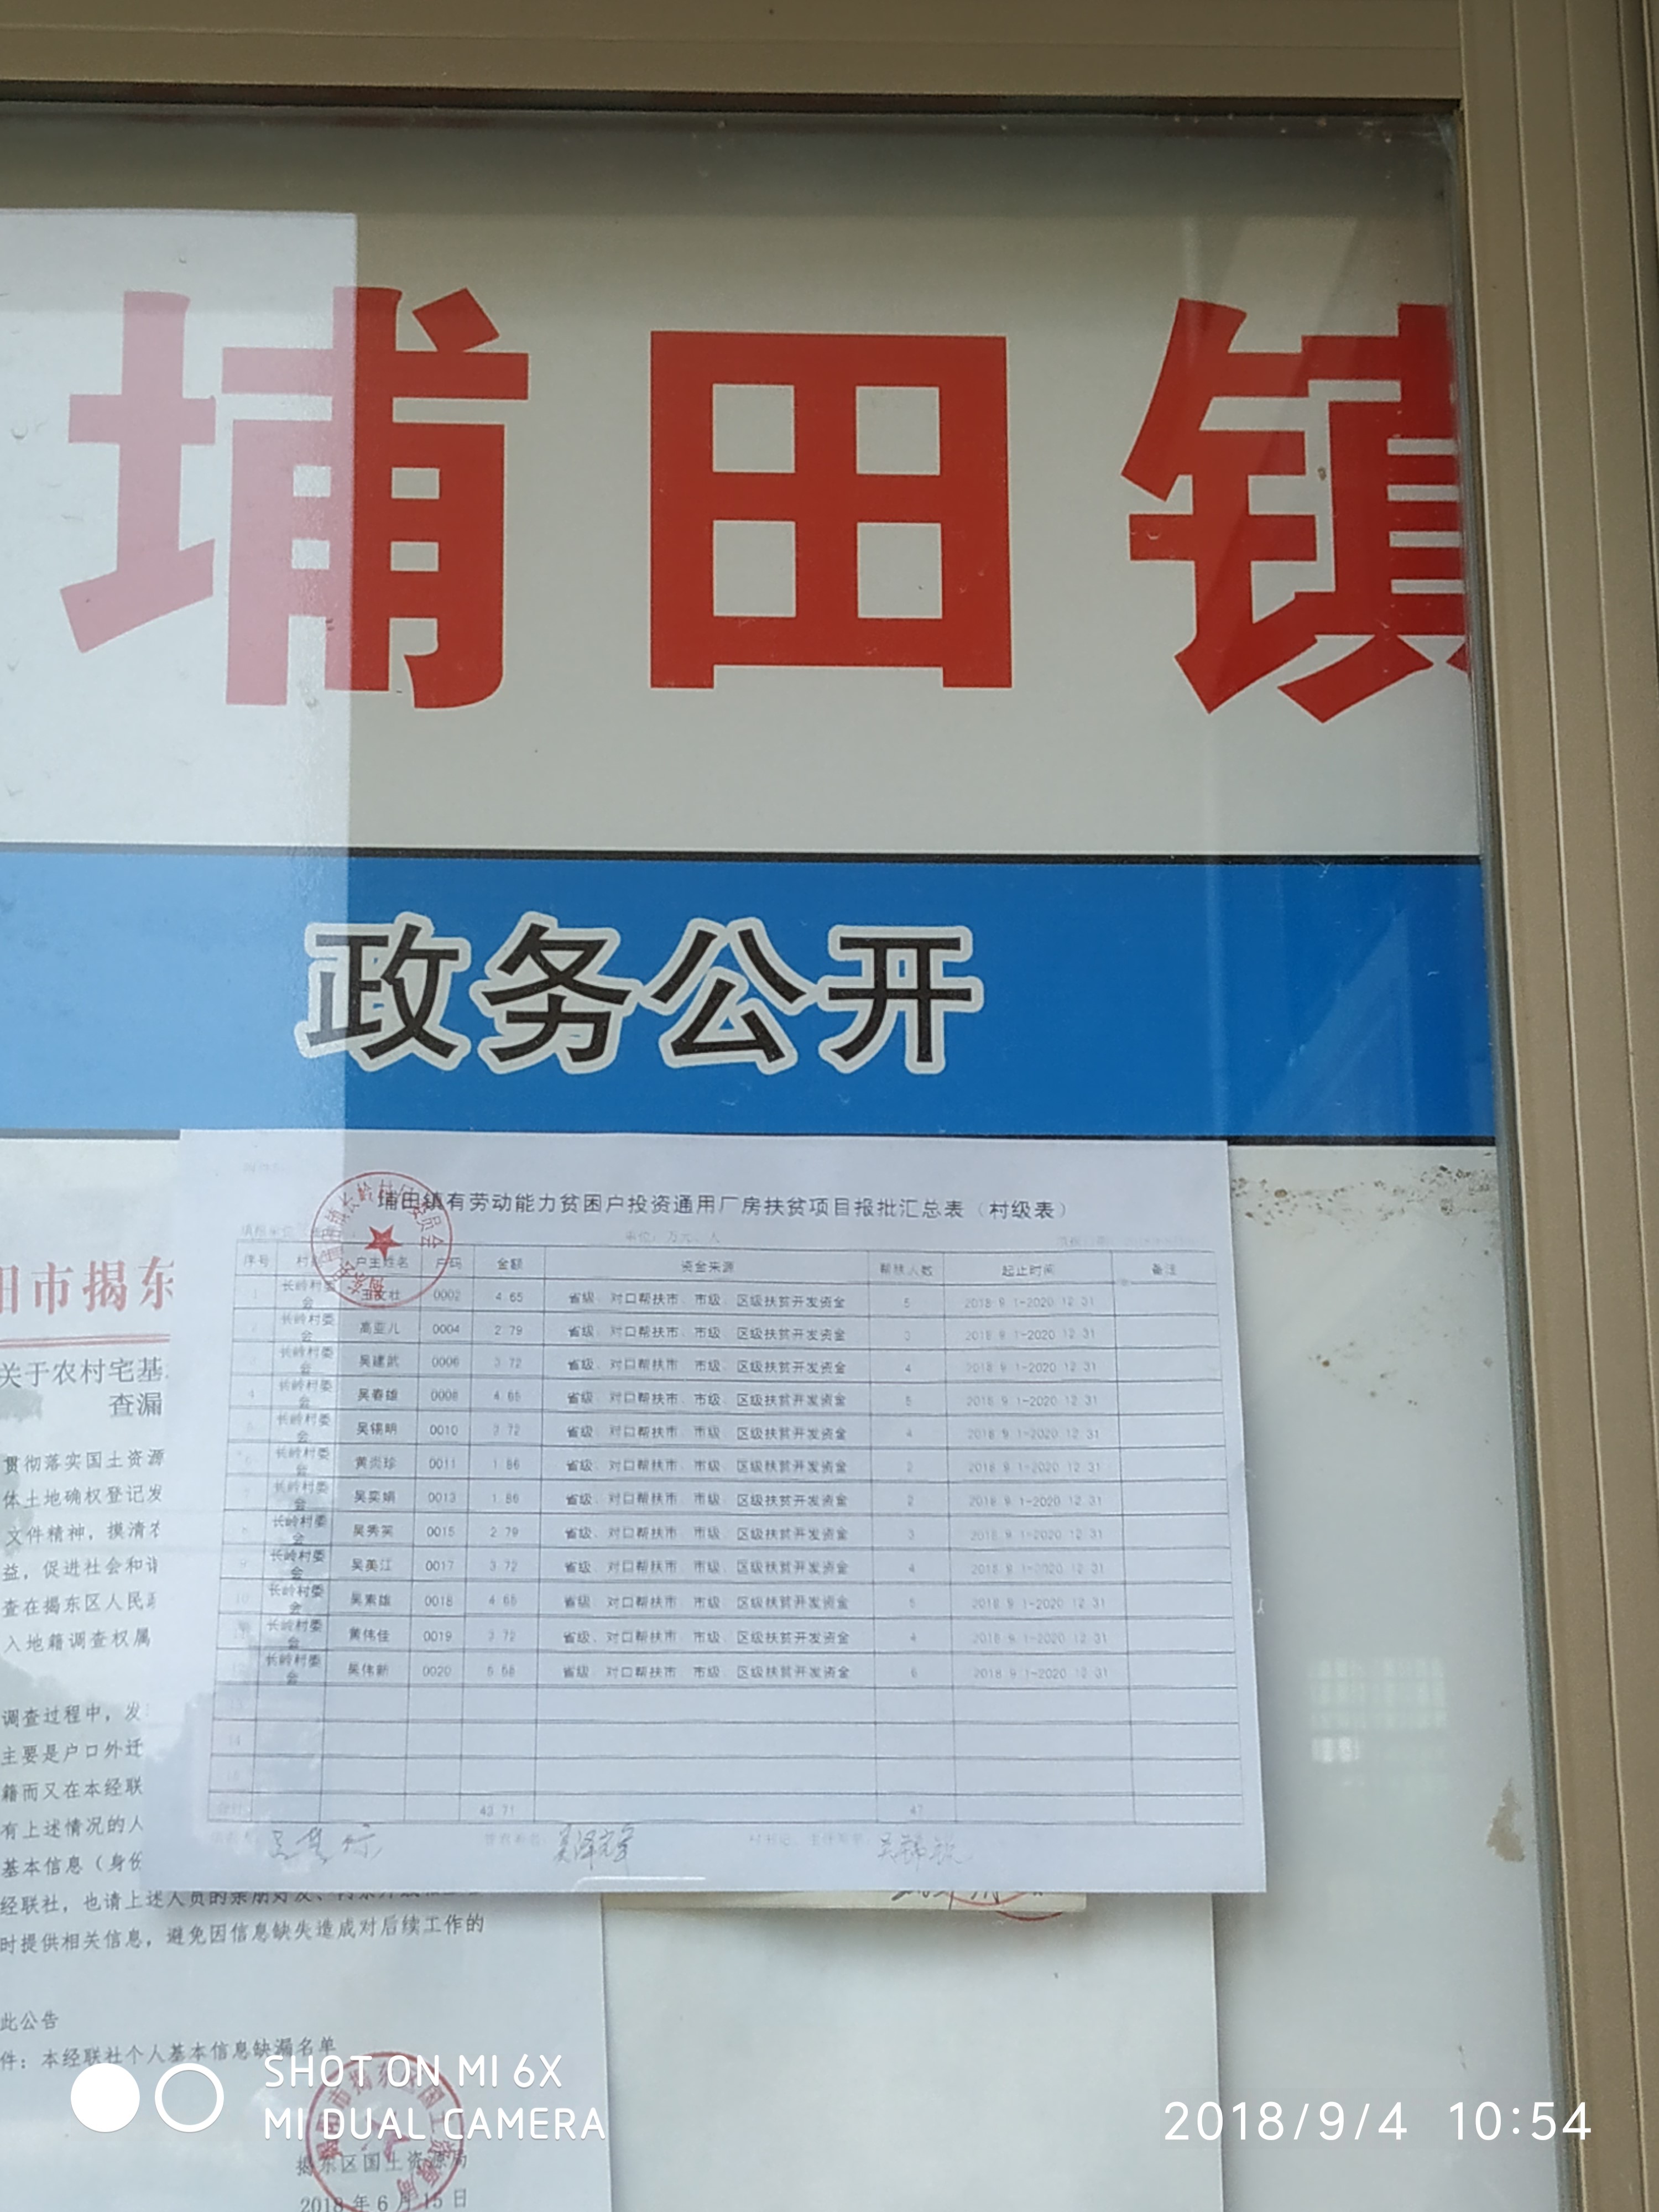 埔田镇
政务公开
埔田镇有劳动能力贫困户投资通用厂房扶贫项目报批汇总表（村级表）
单位：万元、人
序号 户主姓名 户码 金额 资金来源 帮扶人数 起止时间 备注
长岭村委会 0002 4.65 省级、对口帮扶市、市级、区级扶贫开发资金 5 2018.9.1-2020.12.31
长岭村委会 高亚儿 0004 2.79 省级、对口帮扶市、市级、区级扶贫开发资金 3 2018.9.1-2020.12.31
长岭村委会 吴建武 0006 3.72 省级、对口帮扶市、市级、区级扶贫开发资金 4 2018.9.1-2020.12.31
4 长岭村委会 吴春雄 0008 4.65 省级、对口帮扶市、市级、区级扶贫开发资金 5 2018.9.1-2020.12.31
长岭村委会 吴锡明 0010 3.72 省级、对口帮扶市、市级、区级扶贫开发资金 4 2018.9.1-2020.12.31
长岭村委会 黄 珍 0011 1.86 省级、对口帮扶市、市级、区级扶贫开发资金 2 2018.9.1-2020.12.31
长岭村委会 吴奕娟 0013 1.86 省级、对口帮扶市、市级、区级扶贫开发资金 2 2018.9.1-2020.12.31
长岭村委会 吴秀英 0015 2.79 省级、对口帮扶市、市级、区级扶贫开发资金 3 2018.9.1-2020.12.31
长岭村委会 吴美江 0017 3.72 省级、对口帮扶市、市级、区级扶贫开发资金 4 2018.9.1-2020.12.31
长岭村委会 吴素雄 0018 4.65 省级、对口帮扶市、市级、区级扶贫开发资金 5 2018.9.1-2020.12.31
长岭村委会 黄伟佳 0019 3.72 省级、对口帮扶市、市级、区级扶贫开发资金 4 2018.9.1-2020.12.31
长岭村委会 吴伟新 0020 5.58 省级、对口帮扶市、市级、区级扶贫开发资金 6 2018.9.1-2020.12.31
合计 43.71 47
阳市揭东
关于农村宅基
查漏
贯彻落实国土资源
体土地确权登记发
文件精神，摸清农
益，促进社会和谐
查在揭东区人民政
入地籍调查权属
调查过程中，发
主要是户口外迁
籍而又在本经联
有上述情况的人
基本信息（身份
经联社，也请上述人员的亲朋好友、
时提供相关信息，避免因信息缺失造成对后续工作的
此公告
件：本经联社个人基本信息缺漏名单
揭东区国土资源局
2018年6月15日
SHOT ON MI 6X
MI DUAL CAMERA
2018/9/4 10:54